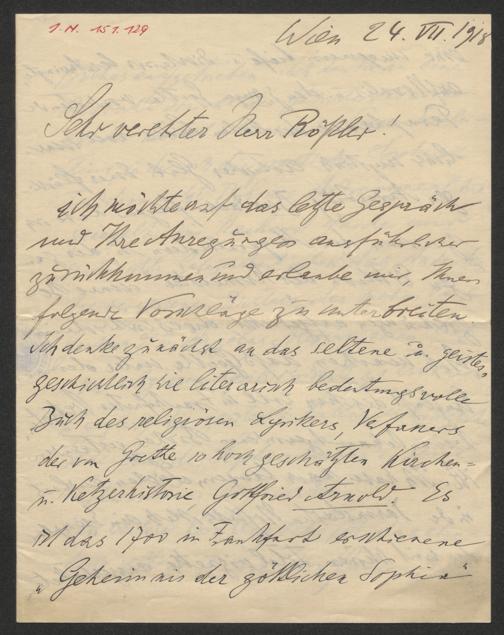 I.N. 151.129
Wien 24. VII. 1918
Sehr verehrter Herr Rößler!
ich möchte auf das letzte Gespräch
und Ihre Anregungen ausführlicher
zurückkommen und erlaube mir, Ihnen
folgende Vorschläge zu unterbreiten.
Ich denke zunächst an das seltene u. geistes-
geschichtlich wie literarisch bedeutungsvolle
Buch des religiösen Lyrikers, Verfassers
der von Goethe so hoch geschätzten Kirchen-
u. Ketzerhistorie Gottfried Arnold. Es
ist das 1700 in Frankfurt erschienene
„Geheimnis der göttlichen Sophia“